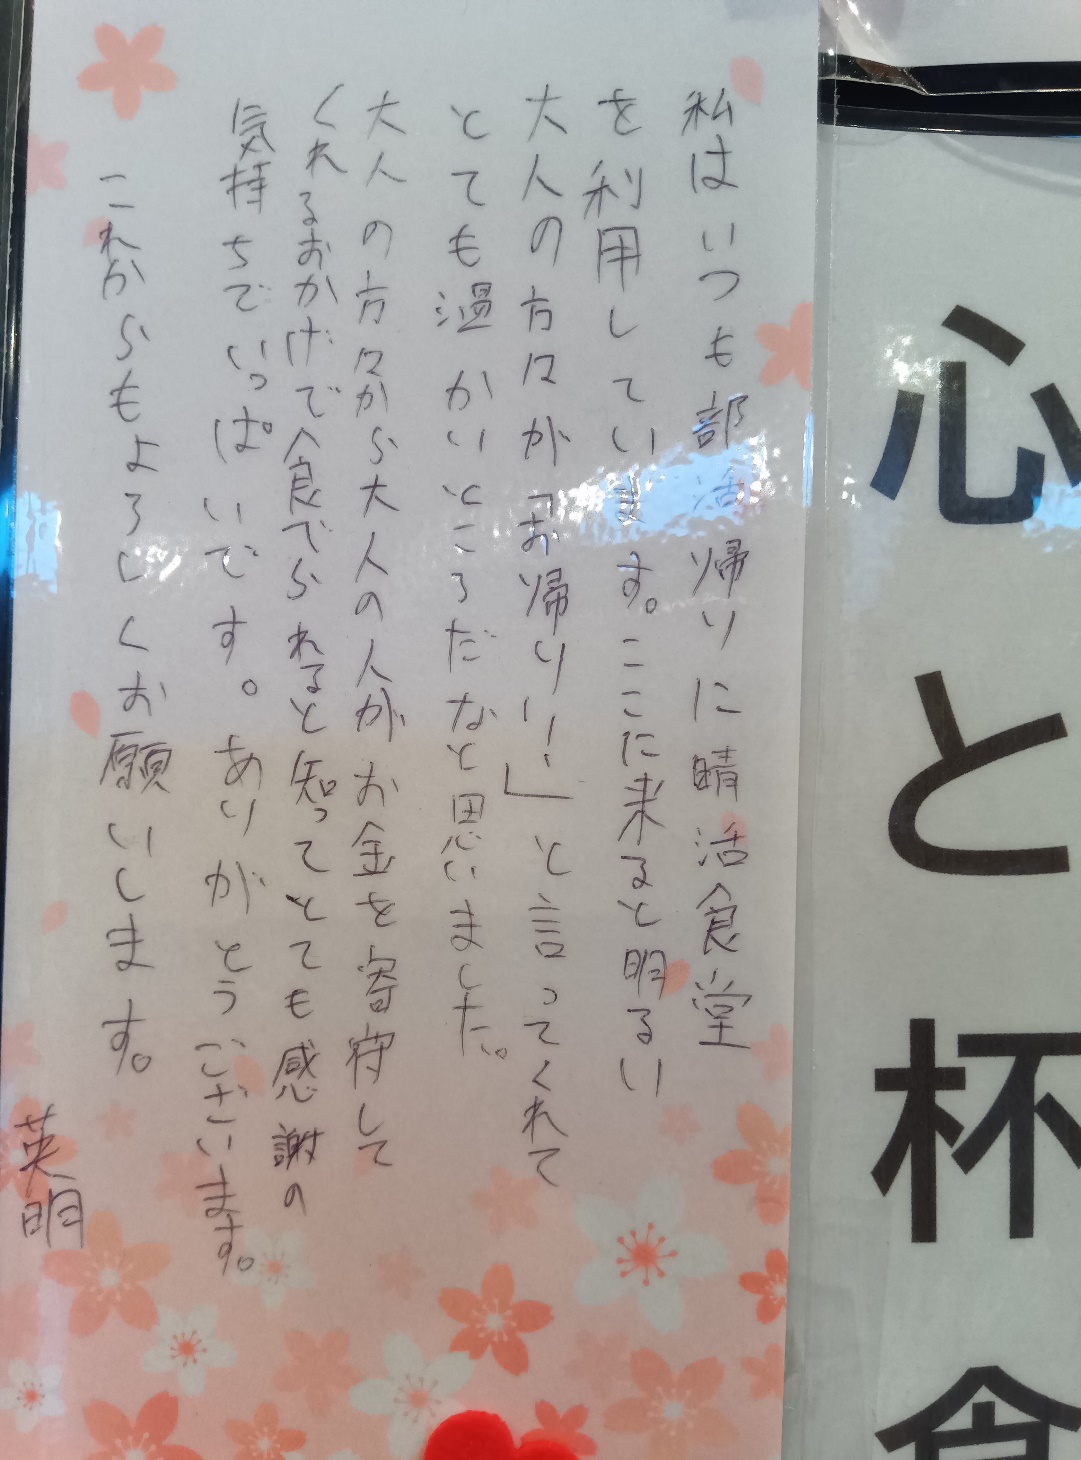 心と杯食
私はいつも部活帰りに晴活食堂
を利用しています。ここに来ると明るい
大人の方々が「お帰りー!」と言ってくれて
とても温かいところだなと思いました。
大人の方々から大人の人がお金を寄付して
くれるおかげで食べられると知ってとても感謝の
気持ちでいっぱいです。ありがとうございます。
これからもよろしくお願いします。
英明